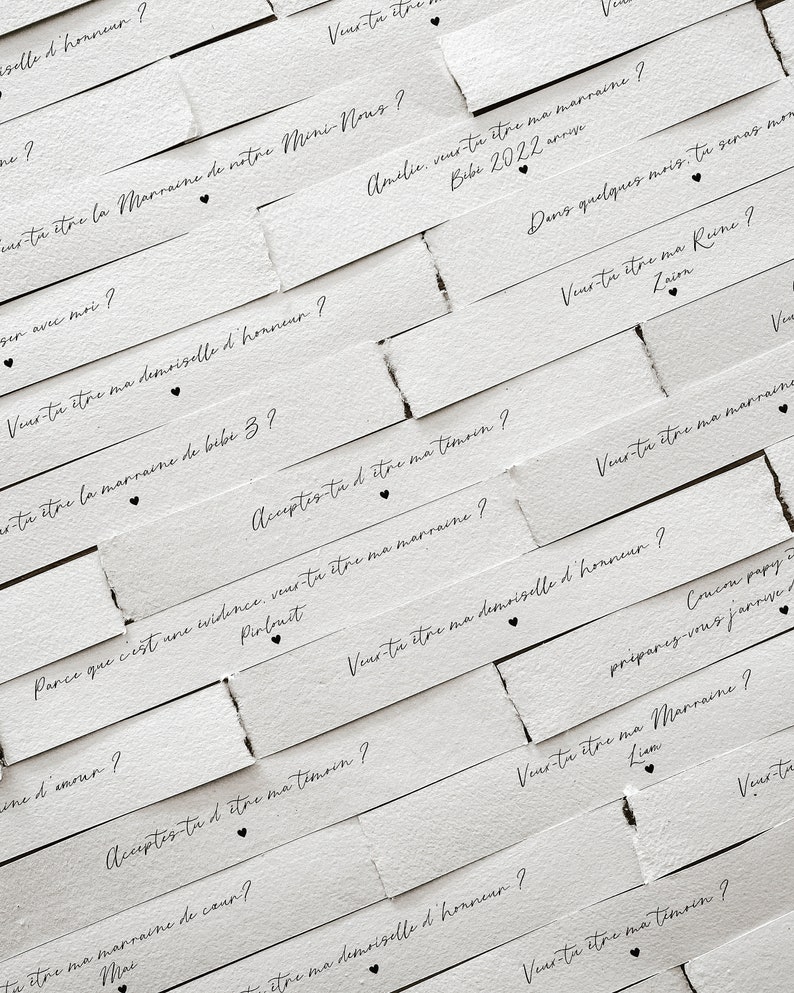 demoiselle d'honneur ?
Veux-tu être ma
Veux
Veux-tu être la Marraine de notre Mini-Nous ?
Amélie, veux-tu être ma marraine ?
Bébé 2022 arrive
Dans quelques mois, tu seras mon
avec moi ?
Veux-tu être ma demoiselle d'honneur ?
Veux-tu être ma Reine ?
Zaïon
Veux
Veux-tu être la marraine de bébé 3 ?
Acceptes-tu d'être ma témoin ?
Veux-tu être ma marraine
Parce que c'est une évidence, veux-tu être ma marraine ?
Pirlouit
Veux-tu être ma demoiselle d'honneur ?
Coucou papy
préparez-vous j'arrive
d'amour ?
Acceptes-tu d'être ma témoin ?
Veux-tu être ma Marraine ?
Liam
Veux-tu
être ma marraine de cœur?
Mai
être ma demoiselle d'honneur ?
Veux-tu être ma témoin ?